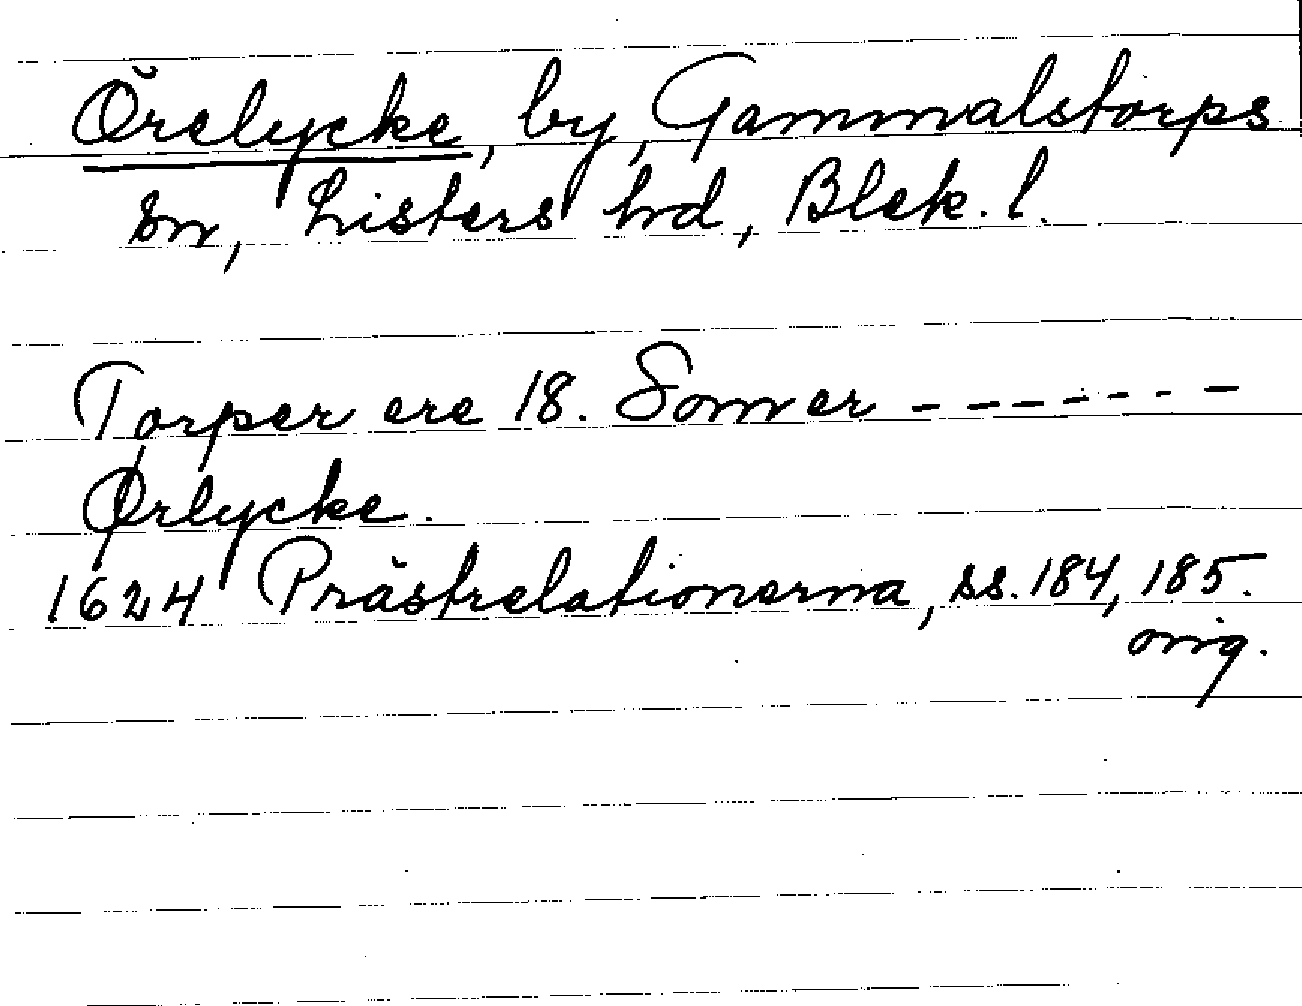 Örelycke, by, Gammalstorps
sn, Listers hd, Blek. l.
Torper ere 18. Somer - - - - - - -
Ørlycke.
1624 Prästrelationerna, ss. 184, 185.
orig.